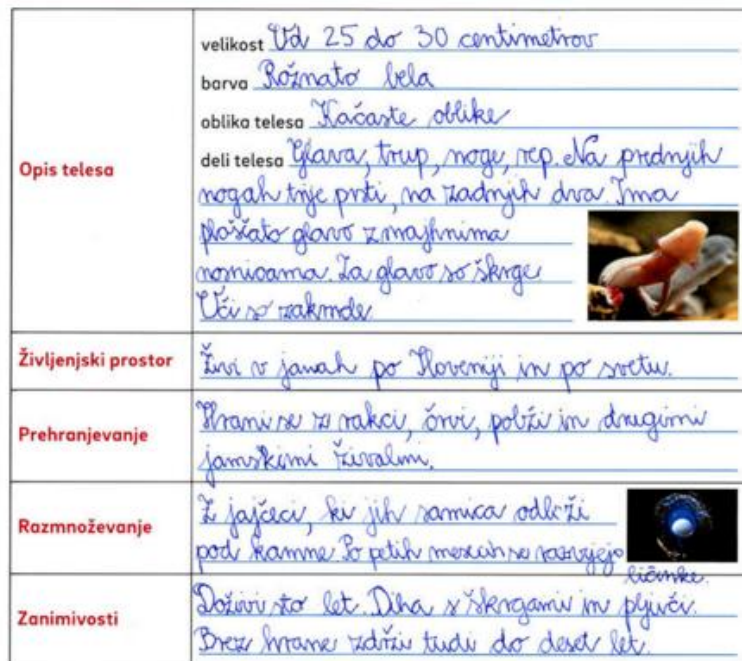 velikost Od 25 do 30 centimetrov
barva Rožnato bela
oblika telesa Kačaste oblike
Opis telesa
deli telesa Glava, trup, noge, rep. Na prednjih
nogah trije prsti, na zadnjih dva. Ima
ploščato glavo z majhnima
nosnicama. Za glavo so škrge.
Oči so zakrnele.
Življenjski prostor
Živi v jamah po Sloveniji in po svetu.
Prehranjevanje
Hrani se z rakci, črvi, polži in drugimi
jamskimi živalmi.
Razmnoževanje
Z jajčeci, ki jih samica odloži
pod kamne. Po petih mesecih se razvijejo
ličinke.
Zanimivosti
Doživi sto let. Diha s škrgami in pljuči.
Brez hrane zdrži tudi do deset let.